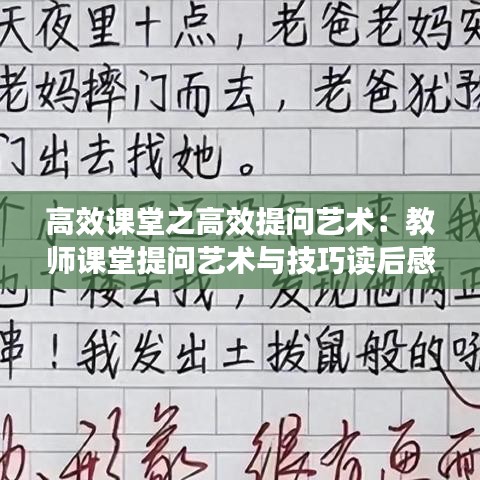 天夜里十点，老爸老妈突
老妈摔门而去，老爸犹豫
门出去找她。
高效课堂之高效提问艺术：教
师课堂提问艺术与技巧读后感
也下楼去找，发现他俩正
串！我发出土拨鼠般的吼
动、形象 很有画面